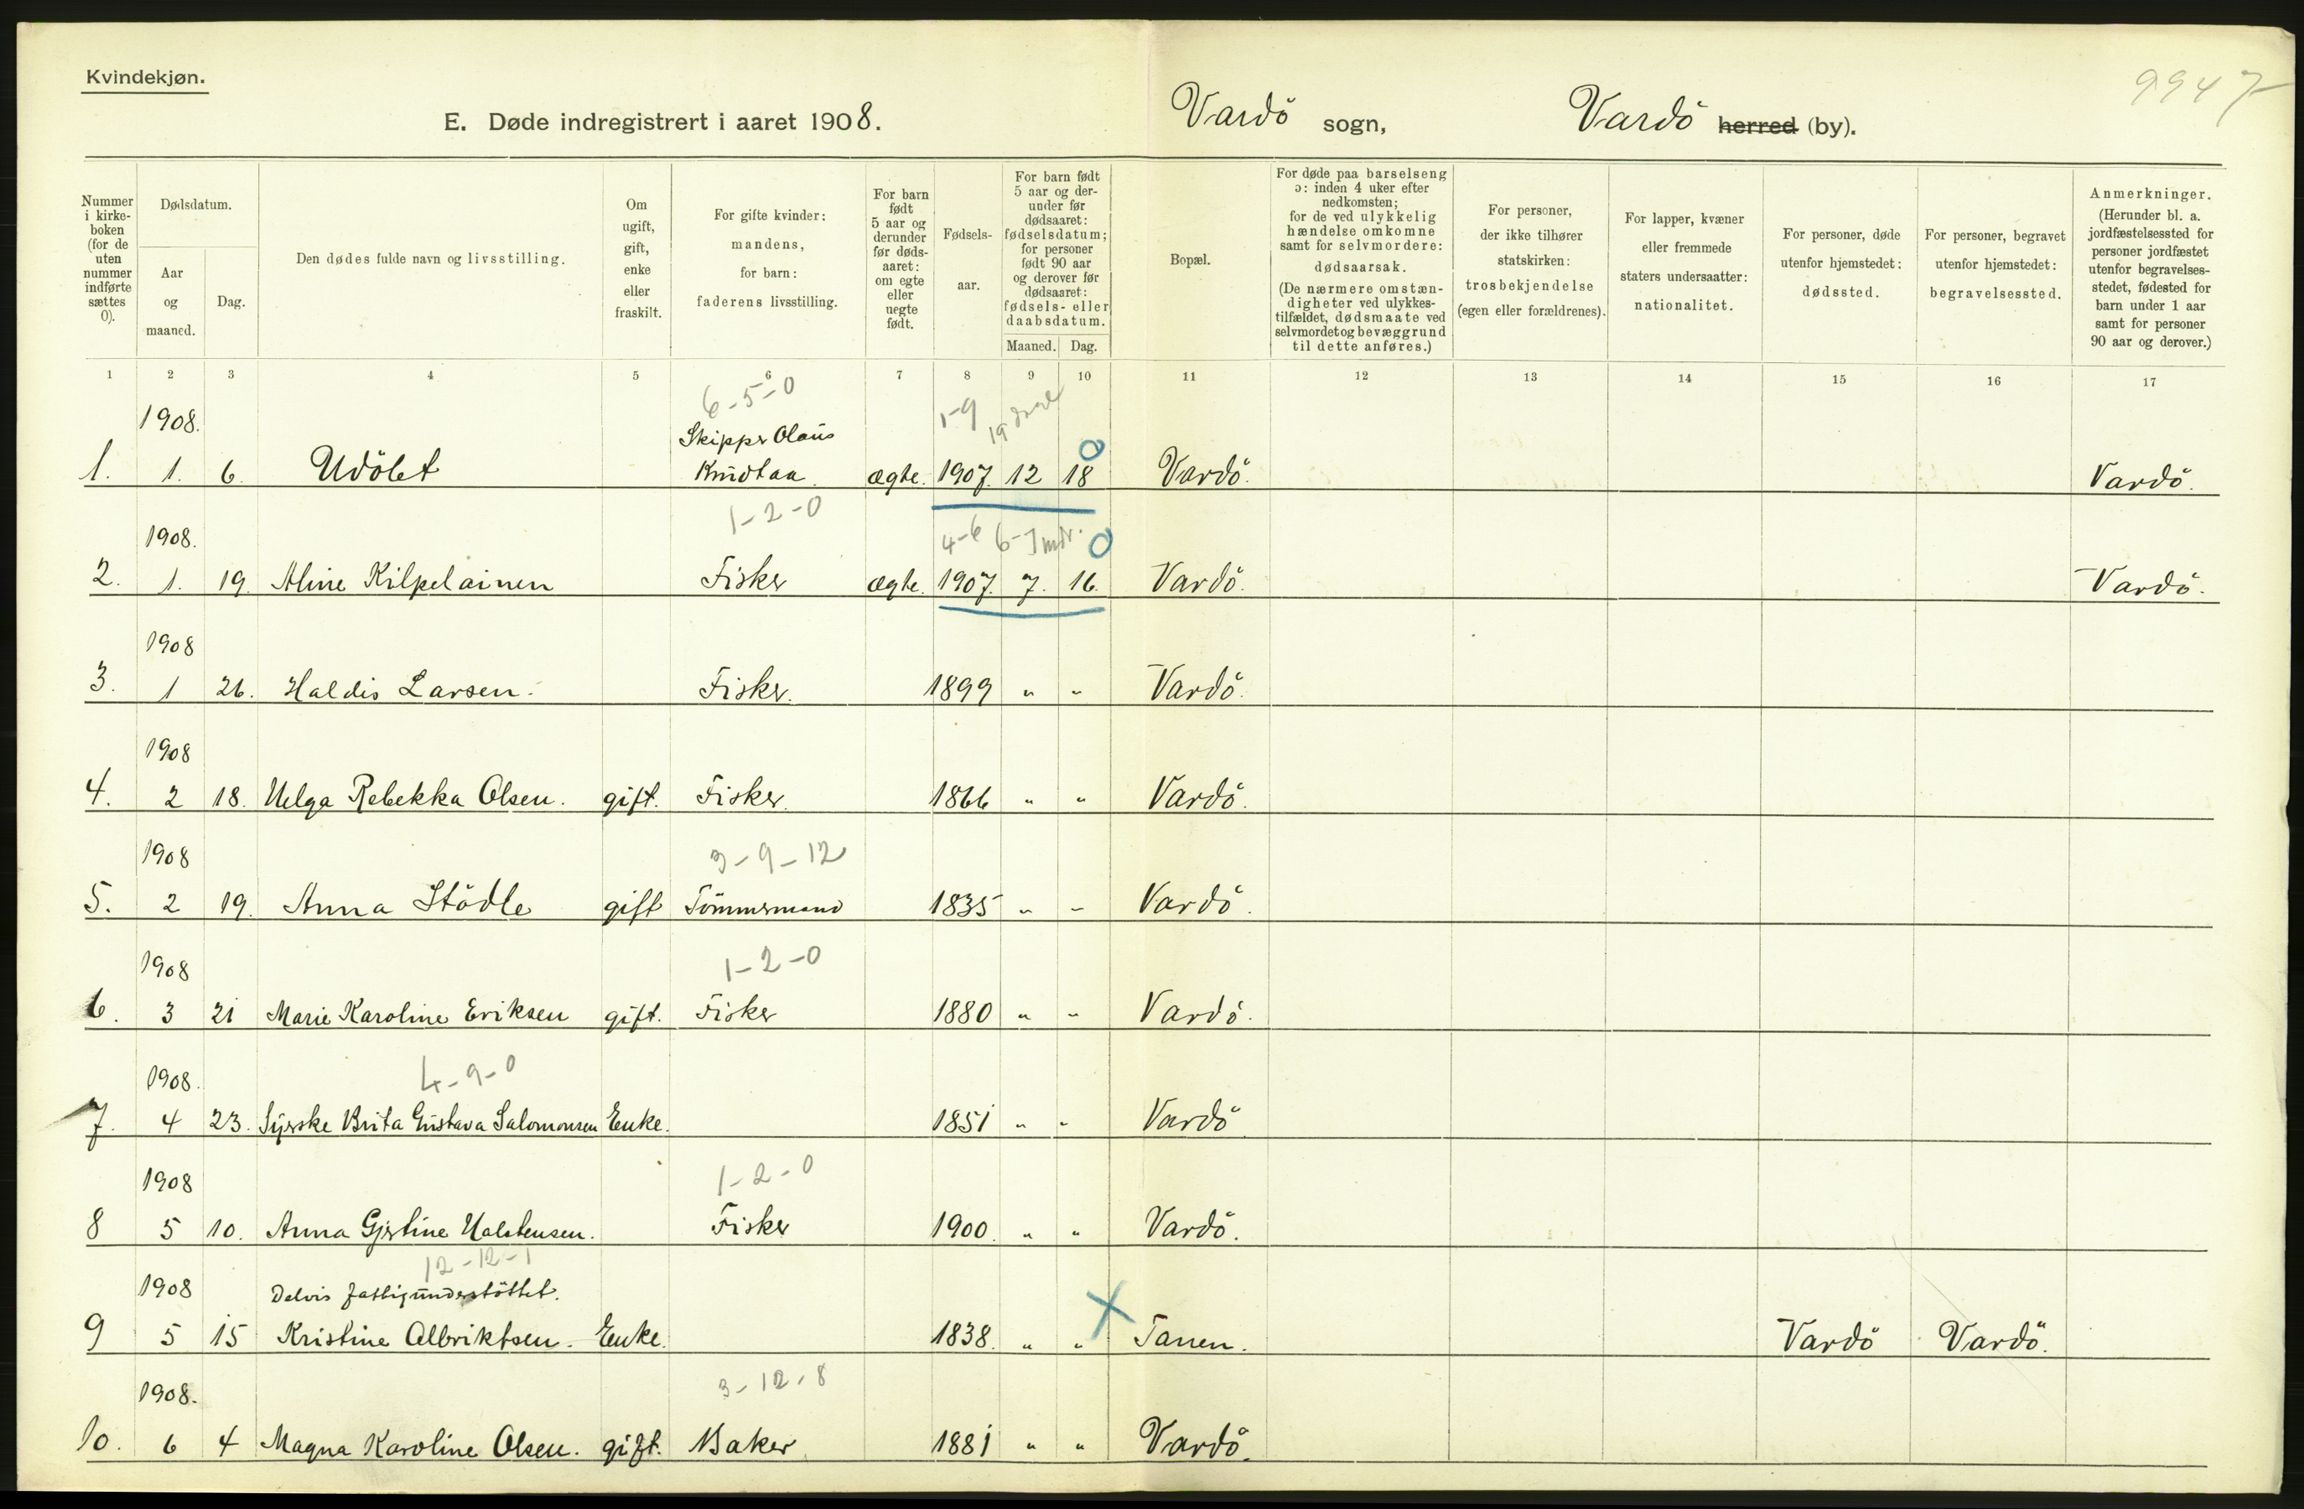 Kvindekjøn.
9947
E. Døde indregistrert i aaret 1908.
Vardö sogn, Vardö herred (by).
Nummer i kirke-boken (for de uten nummer indførte sættes 0).
Dødsdatum.
Aar og maaned.
Dag.
Den dødes fulde navn og livsstilling.
Om ugift, gift, enke eller fraskilt.
For gifte kvinder: mandens, for barn: faderens livsstilling.
For barn født 5 aar og derunder før døds-aaret: om egte eller uegte født.
Fødsels-aar.
For barn født 5 aar og der-under før dødsaaret: fødselsdatum; for personer født 90 aar og derover før dødsaaret: fødsels- eller daabsdatum.
Maaned. Dag.
Bopæl.
For døde paa barselseng ɔ: inden 4 uker efter nedkomsten; for de ved ulykkelig hændelse omkomne samt for selvmordere: dødsaarsak. (De nærmere omstæn-digheter ved ulykkes-tilfældet, dødsmaate ved selvmordet og bevæggrund til dette anføres.)
For personer, der ikke tilhører statskirken: trosbekjendelse (egen eller forældrenes).
For lapper, kvæner eller fremmede staters undersaatter: nationalitet.
For personer, døde utenfor hjemstedet: dødssted.
For personer, begravet utenfor hjemstedet: begravelsessted.
Anmerkninger. (Herunder bl. a. jordfæstelsessted for personer jordfæstet utenfor begravelses-stedet, fødested for barn under 1 aar samt for personer 90 aar og derover.)
1 2 3 4 5 6 7 8 9 10 11 12 13 14 15 16 17
6-5-0 1-9 19
1908. Skipper Olaus
1. 1. 6. Udöbt Knudtaa. ægte. 1907. 12 18 Vardö. Vardö.
1-2-0
1908. 4-6 6-7 mdr.
2. 1. 19. Aline Kilpelainen Fisker ægte. 1907. 7. 16. Vardö. Vardö.
1908
3. 1 26. Haldis Larsen. Fisker. 1899 " " Vardö.
1908
4. 2 18. Helga Rebekka Olsen. gift. Fisker. 1866 " " Vardö.
1908 3-9-12
5. 2 19. Anna Stödle gift Tömmermand 1835 " " Vardö.
1908 1-2-0
6. 3 21 Marie Karoline Eriksen gift. Fisker 1880 " " Vardö.
1908. 4-9-0
7. 4 23. Syerske Brita Gustava Salomonsen Enke. 1851 " " Vardö.
1908 1-2-0
8 5 10. Anna Gjertine Halstensen. Fisker 1900. " " Vardö.
12-12-1
1908 Delvis fattigunderstöttet.
9 5 15 Kristine Albriktsen. Enke. 1838. " " Tanen. Vardö Vardö.
1908. 3-12-8
10. 6 4 Magna Karoline Olsen. gift. Baker 1881 " " Vardö.